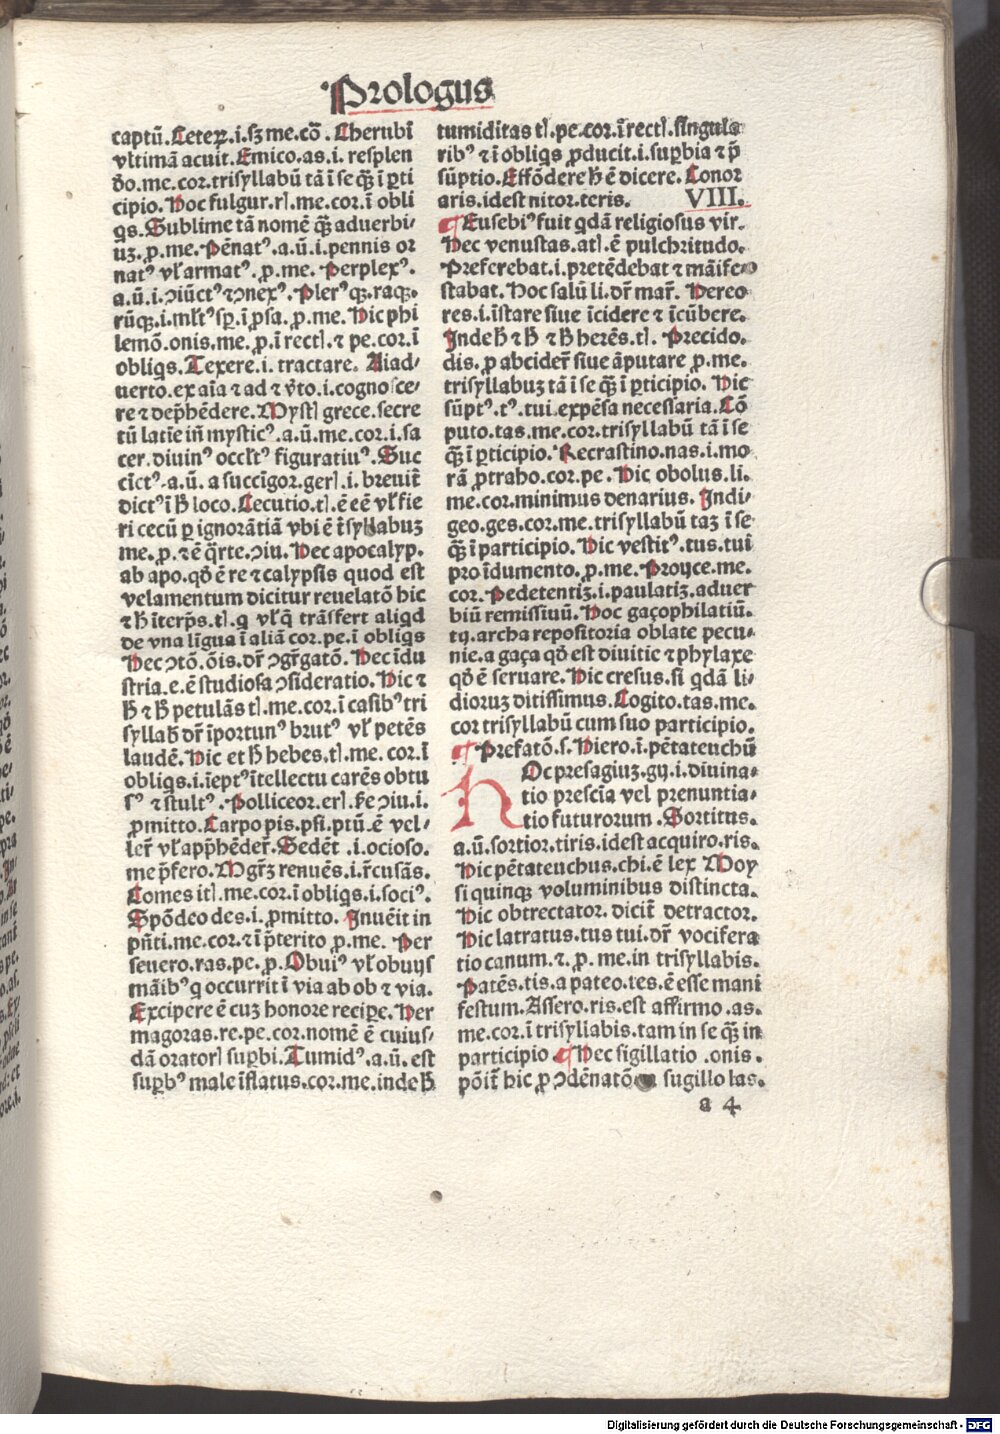 Prologus
captū. Ceteꝝ.i.sꝫ me.cō. Cherubī
vltimā acuit. Emico.as.i. resplen
do.me.cor.trisyllabū tā ī se qꝫ̄ ī ꝑti
cipio. Hoc fulgur.rꝭ.me.cor.ī obli
qs. Sublime tā nomē qꝫ̄ aduerbi-
uꝫ.ꝓ.me. Pēnatꝰ.a.ū.i.pennis or
natꝰ vl̄ armatꝰ.ꝓ.me. Perplexꝰ.
a.ū.i.ꝯiūctꝰ ⁊ ꝯnexꝰ. Plerꝰqꝫ.raqꝫ.
rūqꝫ.i.ml̄tꝰ sꝑ.ī ꝓsa.ꝓ.me. Hic phi
lemō.onis.me.ꝓ.ī rectꝭ.⁊ pe.cor.ī
obliqs. Texere.i. tractare. Aīad-
uerto.ex aīa ⁊ ad ⁊ v̄to.i.cognosce-
re ⁊ dep̄hēdere. Mystꝭ grece.secre
tū latīe in̄ mysticꝰ.a.ū.me.cor.i.sa
cer.diuinꝰ occl̄tꝰ figuratiuꝰ. Suc
cīctꝰ.a.ū. a succigor.gerꝭ.i. breuit̄
dictꝰ ī h̄ loco. Cecutio.tꝭ.ē eē vl̄ fie
ri cecū ꝑ ignorātiā vbi ē ī syllabuꝫ
me.ꝓ.⁊ ē q̄rte.ꝯiu. Hec apocalyp.
ab apo.qd̄ ē re ⁊ calypsis quod est
velamentum dicitur reuelatō hic
⁊ h̄ īterp̄s.tꝭ.q vl̄ q̄ trāsfert aliqd
de vna līgua ī aliā cor.pe.ī obliqs
Hec ꝯtō.ōis.dr̄ ꝯgr̄gatō. Hec īdu
stria.e.ē studiosa ꝯsideratio. Hic ⁊
h̄ ⁊ h̄ petulās tꝭ.me.cor.ī casibꝰ tri
syllab̄ dr̄ īportunꝰ brutꝰ vl̄ petēs
laudē. Hic et h̄ hebes.tꝭ.me.cor.ī
obliqs.i.īeptꝰ ītellectu carēs obtu
sꝰ ⁊ stultꝰ. Polliceor.erꝭ.fe ꝯiu.i.
ꝓmitto. Carpo pis.psi.ptū.ē vel-
ler̄ vl̄ app̄hēder̄. Sedēt .i.ocioso.
me p̄fero. Mgr̄ꝫ renuēs.i.r̄cusās.
Comes itꝭ.me.cor.ī obliqs.i.sociꝰ.
Spōdeo des.i.ꝓmitto. Inuēit in
pn̄ti.me.cor.⁊ ī p̄terito ꝓ.me. Per
seuero.ras.pe.ꝓ. Obuiꝰ vl̄ obuijs
māibꝰ q occurrit ī via ab ob ⁊ via.
Excipere ē cuꝫ honore reciꝑe. Her
magoras.re.pe.cor.nomē ē cuius-
dā oratorꝭ suꝑbi. Tumidꝰ.a.ū. est
suꝑbꝰ male īflatus.cor.me.inde h̄
tumiditas tꝭ.pe.cor.ī rectꝭ.singula
ribꝰ ⁊ ī obliqs ꝓducit.i.suꝑbia ⁊ p̄
sūptio. Effōdere h̄ ē dicere. Conor
aris.idest nitor.teris. VIII.
¶ Eusebiꝰ fuit qdā religiosus vir.
Hec venustas.atꝭ.ē pulchritudo.
Preferebat.i.pretēdebat ⁊ māife-
stabat. Hoc salū li.dr̄ mar̄. Hereo
res.i.īstare siue īcidere ⁊ icūbere.
Inde h̄ ⁊ h̄ ⁊ h̄ herēs.tꝭ. Precido.
dis.ꝓ abcider̄ siue āputare ꝓ.me.
trisyllabuꝫ tā ī se qꝫ̄ ī ꝑticipio. Hic
sūptꝰ.tꝰ.tui.expēsa necessaria. Cō
puto.tas.me.cor.trisyllabū tā ī se
qꝫ̄ ī ꝑticipio. Recrastino.nas.i.mo
rā ꝓtraho.cor.pe. Hic obolus.li.
me.cor.minimus denarius. Indi-
geo.ges.cor.me.trisyllabū taꝫ ī se
qꝫ̄ ī participio. Hic vestitꝰ.tus.tui
pro īdumento.ꝓ.me. Proijce.me.
cor. Pedetentiꝫ.i.paulatiꝫ.aduer
biū remissiuū. Hoc gaçophilatiū.
tij.archa repositoria oblate pecu-
nie.a gaça qd̄ est diuitie ⁊ phylaxe
qd̄ ē seruare. Hic cresus.si qdā li-
dioruꝫ ditissimus. Cogito.tas.me.
cor trisyllabū cum suo participio.
¶ Prefatō.s. Hiero.ī.pētateuchū
HOc presagiuꝫ.gij.i.diuina-
tio prescīa vel prenuntia-
tio futurorum. Sortitus.
a.ū.sortior.tiris.idest acquiro.ris.
Hic pētateuchus.chi.ē lex Moy
si quinqꝫ voluminibus distincta.
Hic obtrectator. dicit̄ detractor.
Hic latratus.tus tui.dr̄ vocifera
tio canum.⁊.ꝓ.me.in trisyllabis.
Patēs.tis.a pateo.tes.ē esse mani
festum. Assero.ris.est affirmo.as.
me.cor.ī trisyllabis.tam in se qꝫ̄ in
participio. ¶ Hec sigillatio.onis.
pōit̄ hic ꝓ ꝯdēnatō sugillo las.
a 4
Digitalisierung gefördert durch die Deutsche Forschungsgemeinschaft - DFG